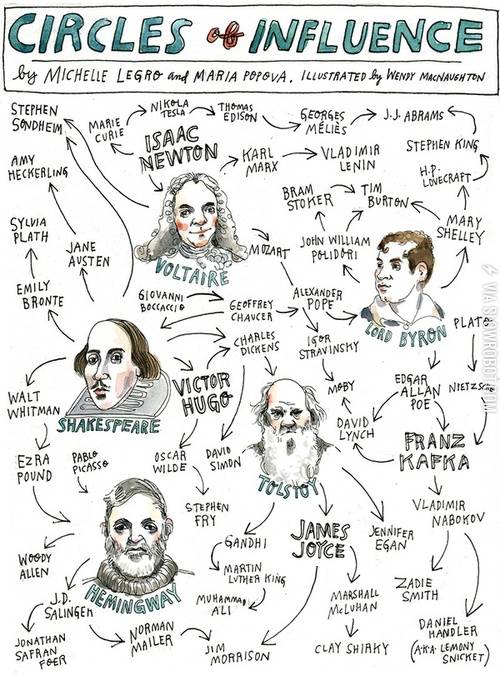 CIRCLES of INFLUENCE
by MICHELLE LEGRO and MARIA POPOVA. ILLUSTRATED by WENDY MACNAUGHTON
STEPHEN
SONDHEIM
MARIE
CURIE
NIKOLA
TESLA
THOMAS
EDISON
GEORGES
MÉLIÈS
J.J. ABRAMS
ISAAC
NEWTON
STEPHEN KING
AMY
HECKERLING
KARL
MARX
VLADIMIR
LENIN
H.P.
LOVECRAFT
BRAM
STOKER
TIM
BURTON
SYLVIA
PLATH
JANE
AUSTEN
MOZART
JOHN WILLIAM
POLIDORI
MARY
SHELLEY
VOLTAIRE
EMILY
BRONTE
GIOVANNI
BOCCACCIO
GEOFFREY
CHAUCER
ALEXANDER
POPE
LORD BYRON
PLATO
CHARLES
DICKENS
IGOR
STRAVINSKY
WALT
WHITMAN
SHAKESPEARE
VICTOR
HUGO
MOBY
EDGAR
ALLAN
POE
NIETZSCHE
DAVID
LYNCH
FRANZ
KAFKA
EZRA
POUND
PABLO
PICASSO
OSCAR
WILDE
DAVID
SIMON
TOLSTOY
STEPHEN
FRY
VLADIMIR
NABOKOV
GANDHI
JAMES
JOYCE
JENNIFER
EGAN
WOODY
ALLEN
HEMINGWAY
MARTIN
LUTHER KING
ZADIE
SMITH
J.D.
SALINGER
MUHAMMAD
ALI
MARSHALL
McLUHAN
JONATHAN
SAFRAN
FOER
NORMAN
MAILER
JIM
MORRISON
CLAY SHIRKY
DANIEL
HANDLER
(A.K.A. LEMONY
SNICKET)